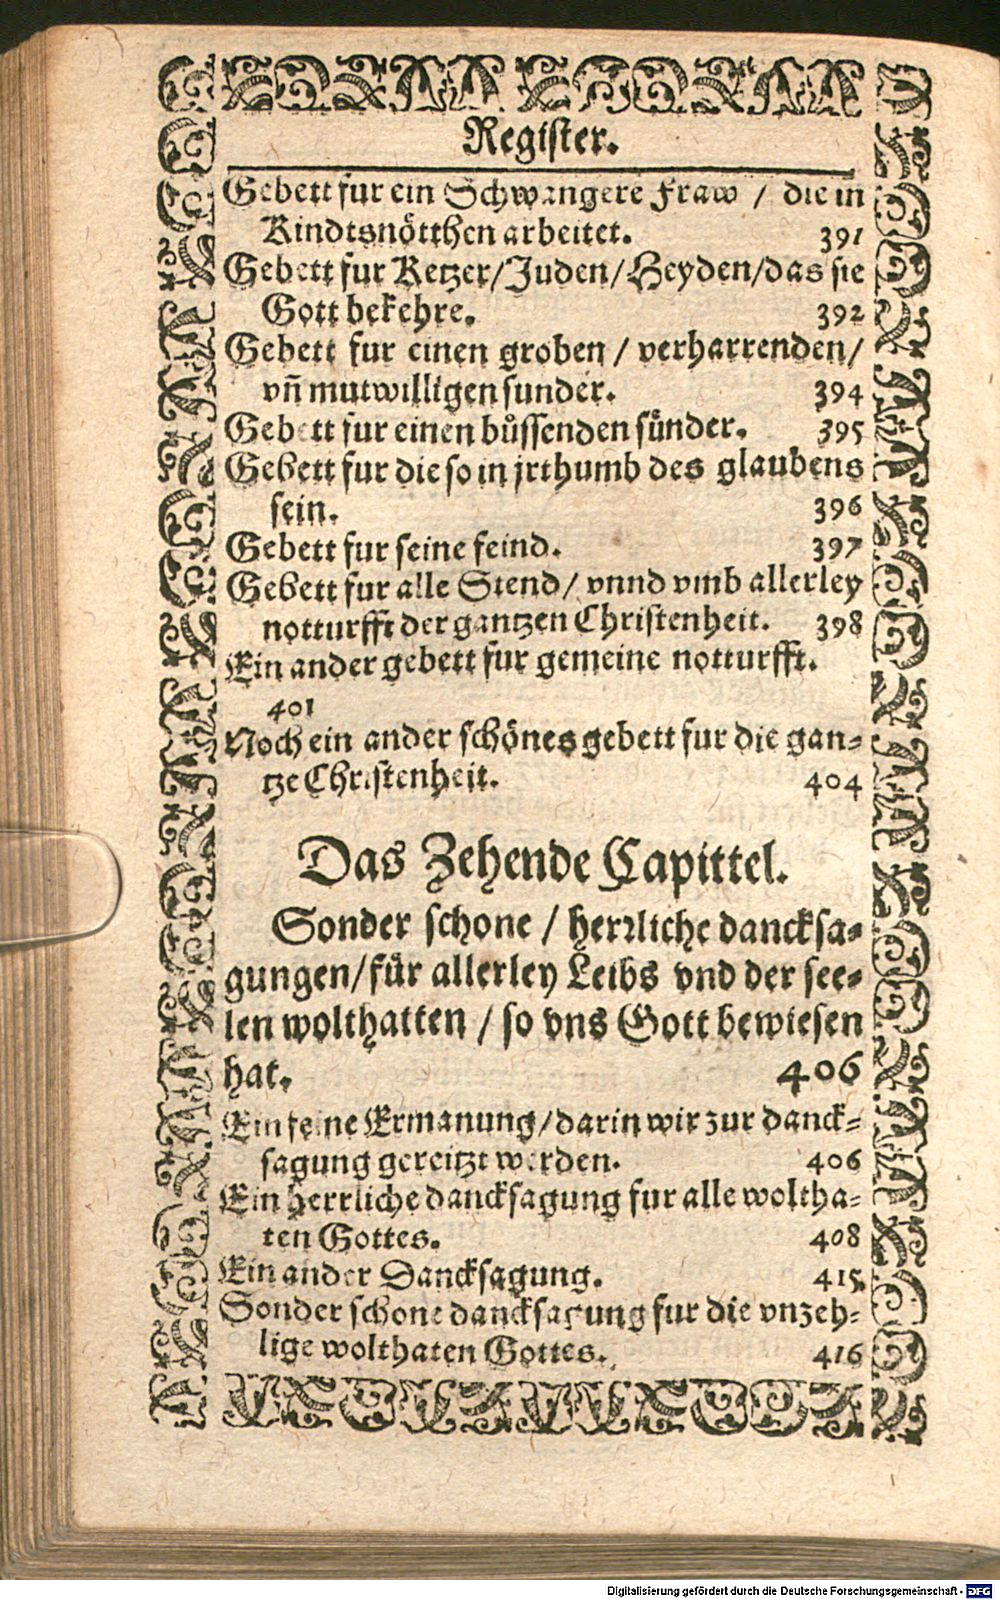 Register.
Gebett fur ein Schwangere Fraw / die in
Kindtsnötthen arbeitet. 391
Gebett fur Ketzer/Juden/Heyden/das sie
Gott bekehre. 392
Gebett fur einen groben / verharrenden/
vn̄ mutwilligen sunder. 394
Gebett fur einen bůssenden sünder. 395
Gebett fur die so in jrthumb des glaubens
sein. 396
Gebett fur seine feind. 397
Gebett fur alle Stend/ vnnd vmb allerley
notturfft der gantzen Christenheit. 398
Ein ander gebett fur gemeine notturfft.
401
Noch ein ander schönes gebett fur die gan-
tze Christenheit. 404
Das Zehende Capittel.
Sonder schone / herrliche dancksa-
gungen/für allerley Leibs vnd der see-
len wolthatten / so vns Gott bewiesen
hat. 406
Ein feine Ermanung/darin wir zur danck-
sagung gereitzt werden. 406
Ein herrliche dancksagung fur alle woltha-
ten Gottes. 408
Ein ander Dancksagung. 415
Sonder schone dancksagung fur die vnzeh-
lige wolthaten Gottes. 416
Digitalisierung gefördert durch die Deutsche Forschungsgemeinschaft - DFG